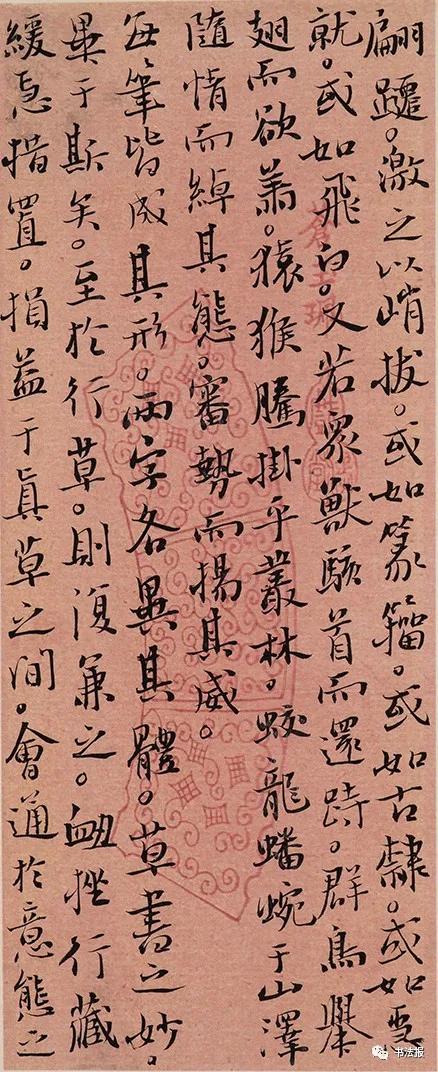 翩躚。激之以峭拔。或如篆籀。或如古隸。或如急
就。或如飛白。又若眾獸駭首而還跱。群鳥舉
翅而欲翔。猿猴騰掛乎叢林。蛟龍蟠蜿于山澤
隨情而綽其態。審勢而揚其威。
每筆皆成其形。兩字各異其體。草書之妙。
畢于斯矣。至於行草。則復兼之。衄挫行藏
緩急措置。損益于眞草之間。會通於意態之
书法报